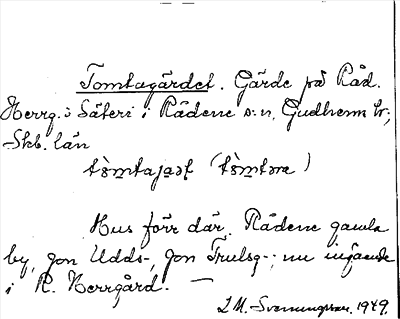 Tomtagärdet. Gärde på Råd.
Herrg. o Säteri i Rådene s:n, Gudhem hr;
Skb. län
Hus förr där. Rådene gamla
by, Jon Udds-, Jon Trulsg-; nu ingående
i R. Herrgård. —
L M. Svenungsson. 1949.